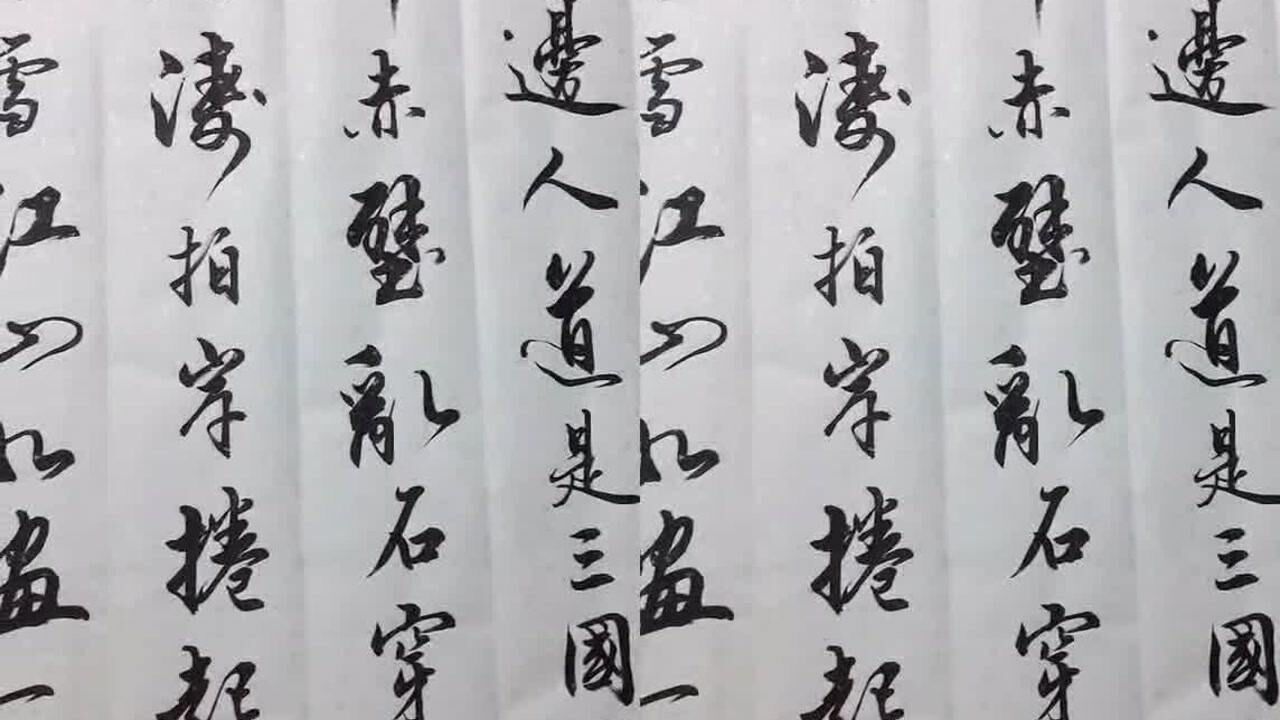 邊人道是三國
赤壁亂石穿
濤拍岸捲起
雪江山如畫一
邊人道是三國
赤壁亂石穿
濤拍岸捲起
雪江山如畫一